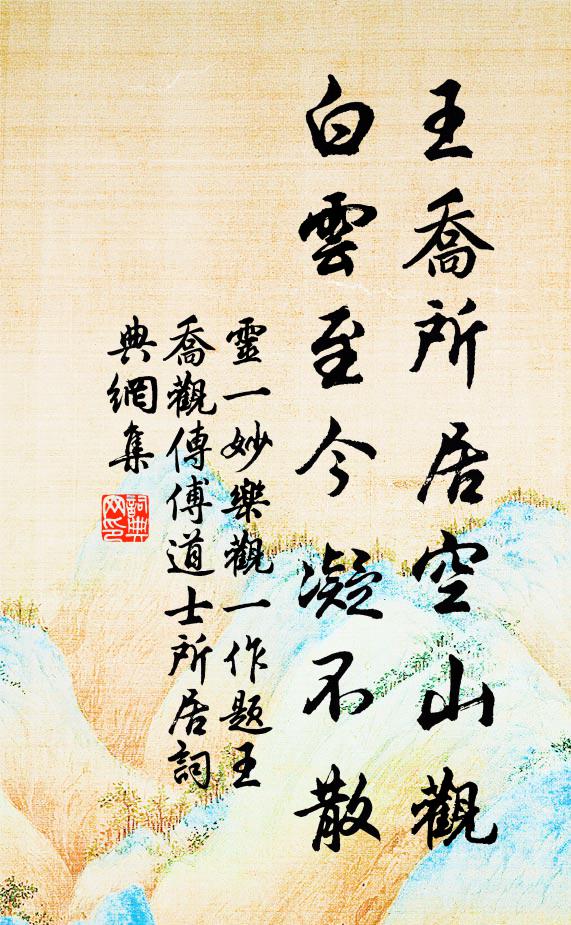 王喬所居空山觀
白雲至今凝不散
靈一妙樂觀一作題王
喬觀傳傅道士所居詞
典網集
詞典
網印